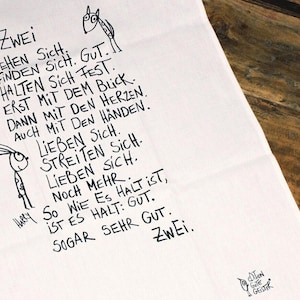 ZWEI
SEHEN SICH.
FINDEN SICH. GUT.
HALTEN SICH FEST.
ERST MIT DEM BLICK.
DANN MIT DEN HERZEN.
AUCH MIT DEN HÄNDEN.
LIEBEN SICH.
STREITEN SICH.
LIEBEN SICH.
NOCH MEHR.
SO WIE ES HALT IST,
IST ES HALT: GUT.
SOGAR SEHR GUT.
ZWEI.
GUTE
GEISTER